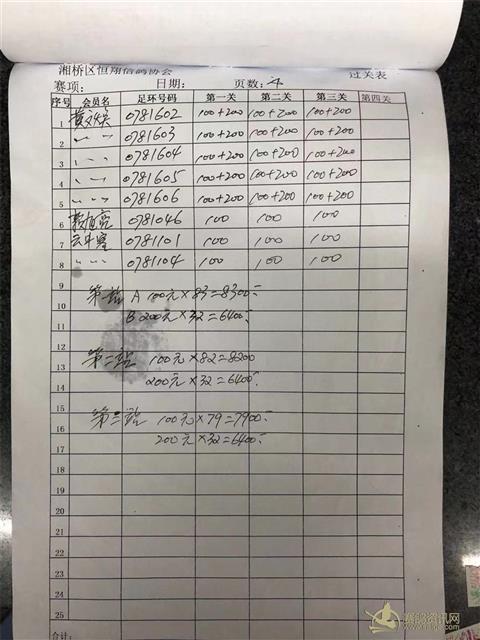 湘桥区恒翔信鸽协会
赛项: 日期: 页数: 过关表
序号 会员名 足环号码 第一关 第二关 第三关 第四关
1 0781602 100+200 100+200 100+200
2 〃 〃 0781603 100+200 100+200 100+200
3 〃 〃 0781604 100+200 100+200 100+200
4 〃 〃 0781605 100+200 100+200 100+200
5 〃 〃 0781606 100+200 100+200 100+200
6 0781046 100 100 100
7 0781101 100 100 100
8 〃 〃 0781104 100 100 100
9 第一站 A 100元×83=8300-
10
11 B 200元×32=6400-
12
13 第二站 100元×82=8200
14 200元×32=6400-
15
16 第三站 100元×79=7900-
17 200元×32=6400-
18
19
20
21
22
23
24
25
合计:
赛鸽资讯网